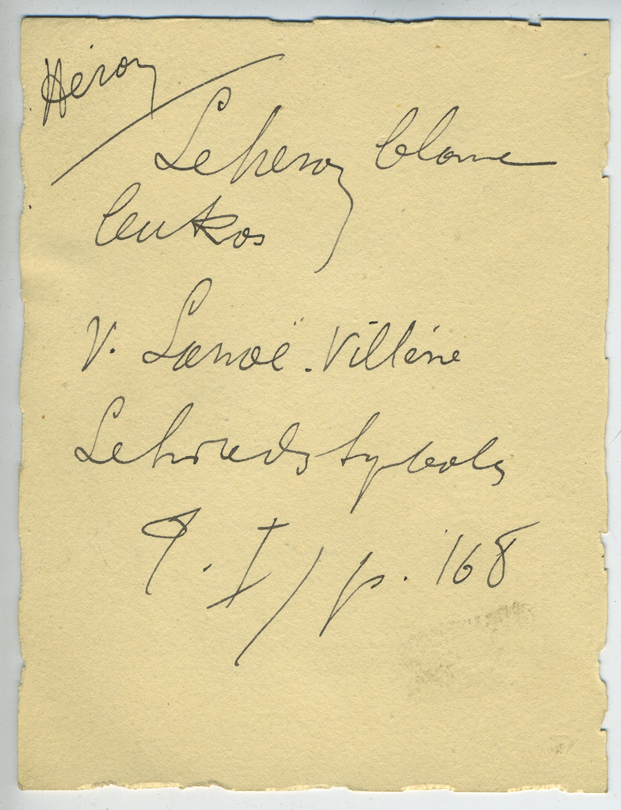 Héron
Le heron blanc
leukos
V. Lanoë-Villène
Le livre des Symboles
T. I, p. 168